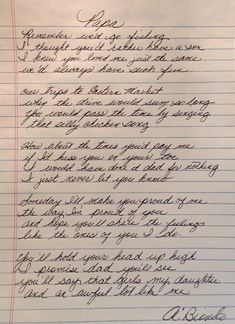 Papa
Remember we'd go fishing
I thought you'd rather have a son
I knew you loved me just the same
we'd always have such fun
Our trips to Eastern Market
when the drive would seem so long
You would pass the time by singing
That silly chicken song
How about the times you'd pay me
if I'd kiss you on your toe
I would have done it dad for nothing
I just never let you know
Someday I'll make you proud of me
the way I'm proud of you
and hope you'll share the feelings
like the ones of you I do.
You'll hold your head up high
I promise dad you'll see
you'll say that girls my daughter
and an awful lot like me